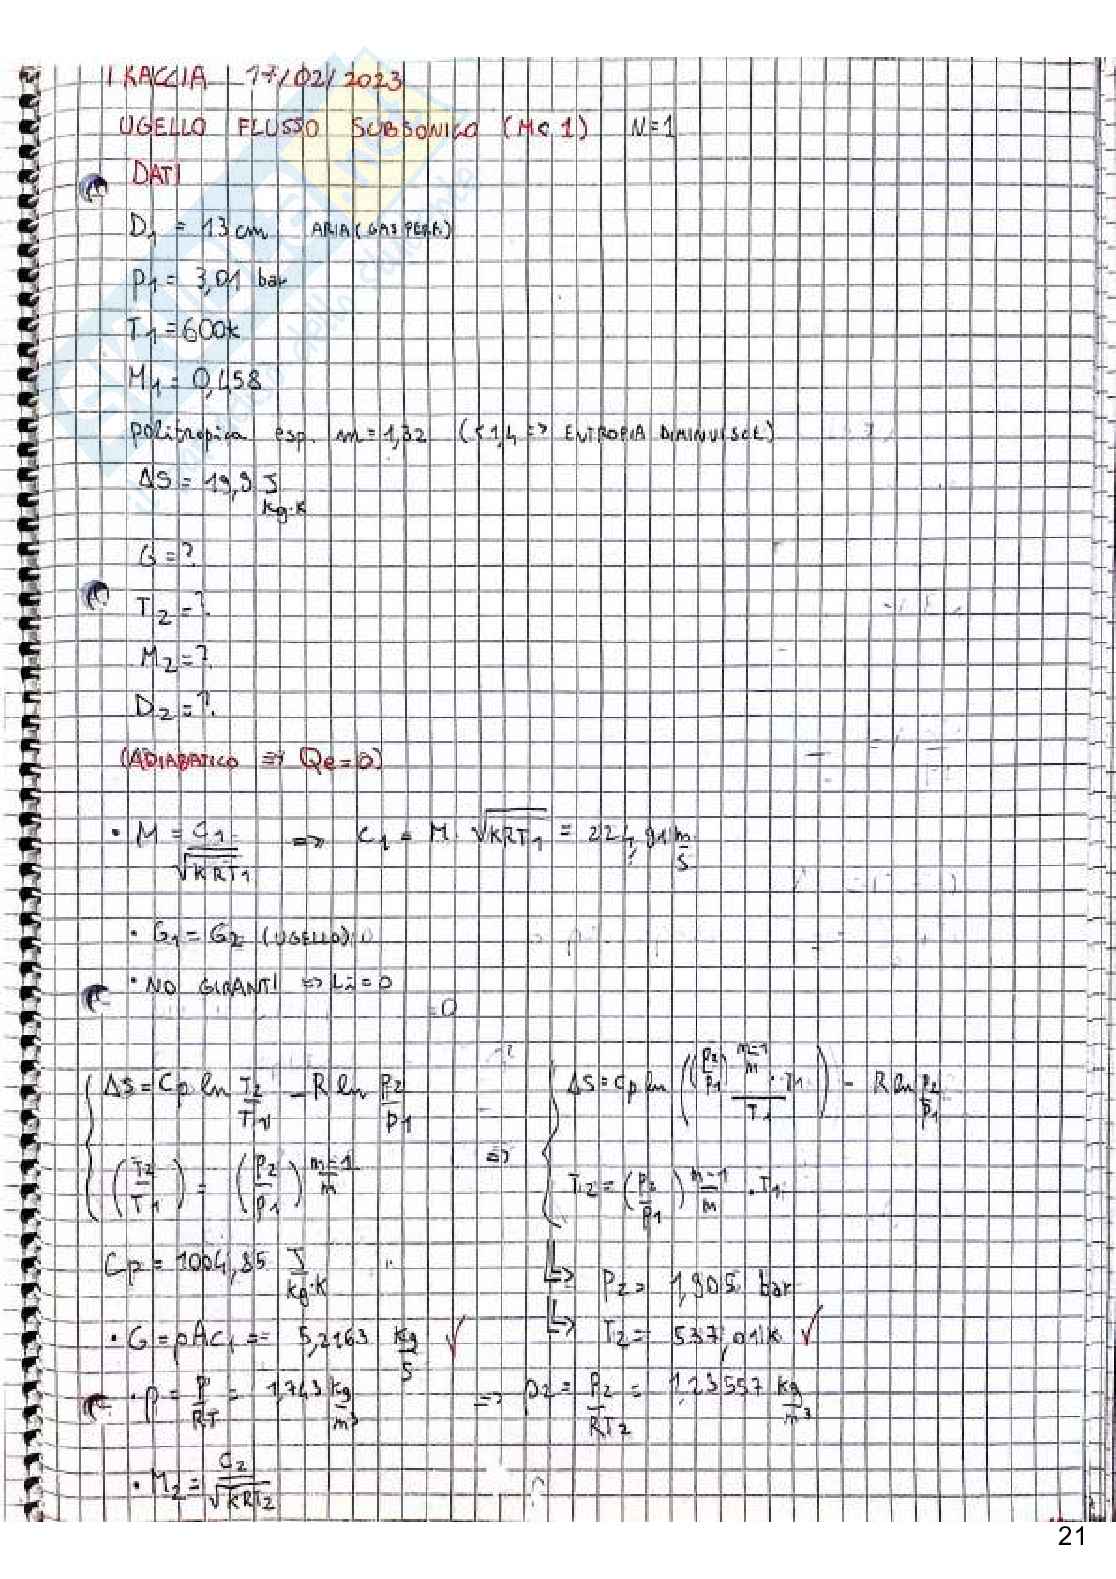 TRACCIA 17/02/2023
UGELLO FLUSSO SUBSONICO (M<1) N=1
DATI
D1 = 13 cm ARIA (GAS PERF.)
P1 = 3,01 bar
T1 = 600K
M1 = 0,458
politropica esp. m=1,32 (<1,4 => ENTROPIA DIMINUISCE)
ΔS = 19,9 J/kg·K
G = ?
T2 = ?
M2 = ?
D2 = ?
(ADIABATICO => Qe=0)
• M = C1/√KRT1 => C1 = M · √KRT1 = 224,91 m/s
• G1 = G2 (UGELLO)
• NO GIRANTI => Li=0
=0
ΔS = Cp ln T2/T1 - R ln P2/P1
(T2/T1) = (P2/P1)^(m-1/m)
=>
ΔS = Cp ln ((P2/P1)^(m-1/m) · T1 / T1) - R ln P2/P1
T2 = (P2/P1)^(m-1/m) · T1
Cp = 1004,85 J/kg·K
P2 = 1,905 bar
• G = ρAC1 = 5,2163 kg/s ✓
T2 = 537,01K ✓
• ρ = P/RT = 1,743 kg/m³ => ρ2 = P2/RT2 = 1,23557 kg/m³
• M2 = C2/√KRT2
21